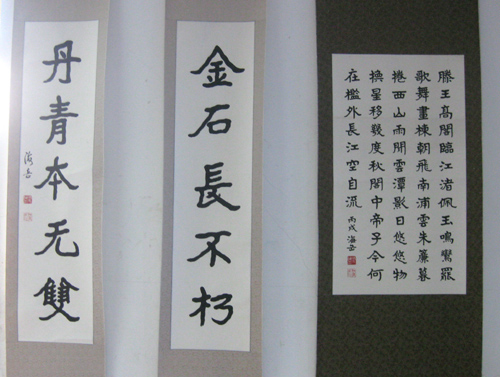 滕王高閣臨江渚佩玉鳴鸞罷
歌舞畫棟朝飛南浦雲朱簾暮
捲西山雨閒雲潭影日悠悠物
換星移幾度秋閣中帝子今何
在檻外長江空自流 丙戌海岳
金石長不朽
丹青本无雙
海岳